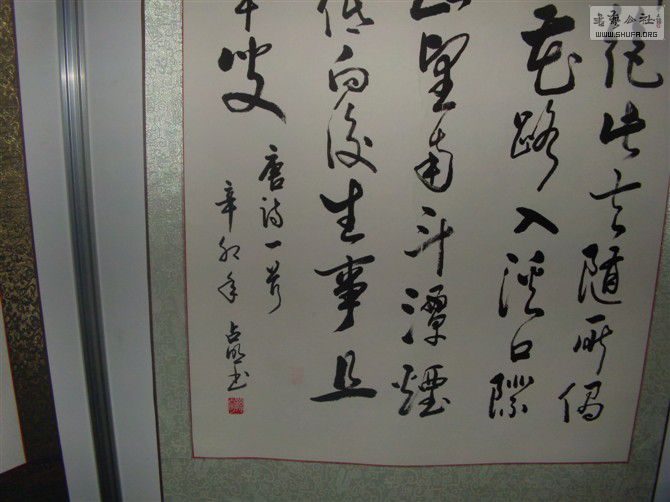 絕此去隨所偶
花路入溪口際
山望南斗潭煙
低向後生事且
竿叟
唐詩一首
辛卯年 占 书
公社
WWW.SHUFA.ORG